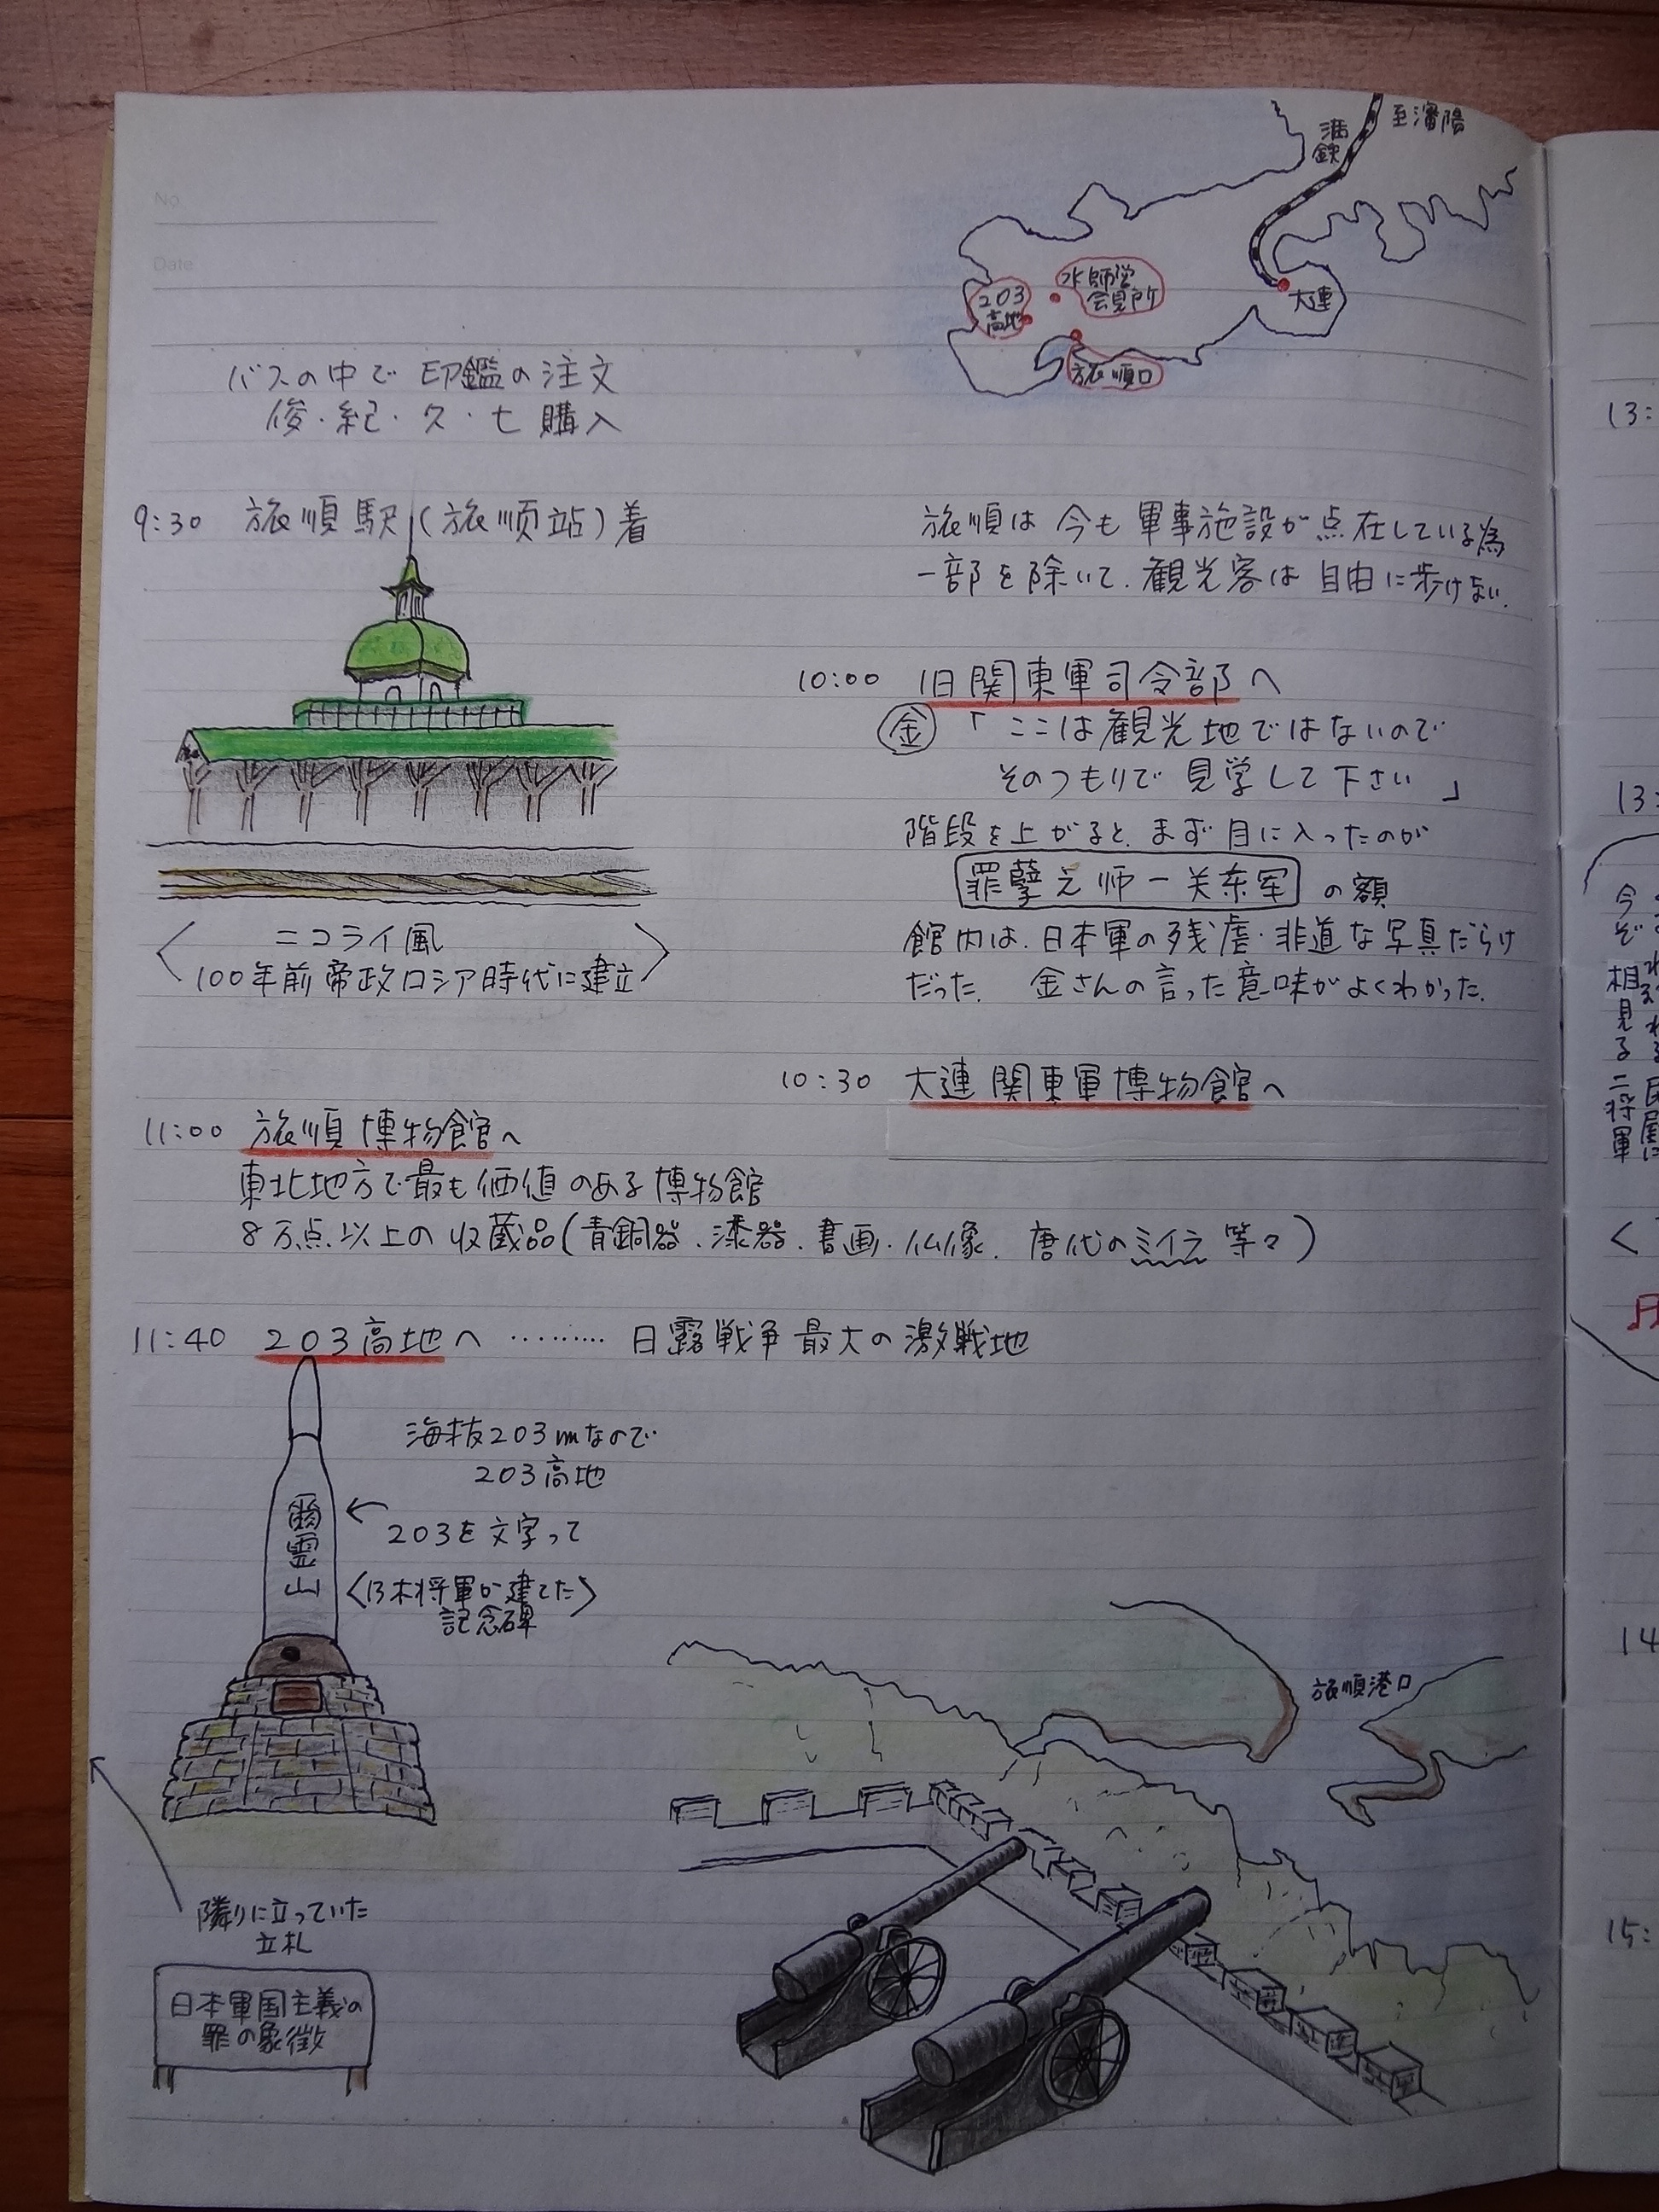 No
Date
満鉄
至瀋陽
203
高地
水師営
会見所
大連
旅順口
バスの中で 印鑑の注文
俊・紀・久・七 購入
9:30 旅順駅(旅顺站)着
ニコライ風
100年前帝政ロシア時代に建立
旅順は 今も 軍事施設が点在している為
一部を除いて、観光客は 自由に歩けない。
10:00 旧関東軍司令部へ
金 「ここは観光地ではないので
そのつもりで 見学して下さい」
階段を上がると、まず目に入ったのが
罪孽之师一关东军 の額
館内は、日本軍の残虐・非道な写真だらけ
だった。 金さんの言った意味がよくわかった。
10:30 大連関東軍博物館へ
11:00 旅順博物館へ
東北地方で最も価値のある博物館
8万点以上の収蔵品(青銅器、漆器、書画、仏像、唐代のミイラ 等々)
11:40 203高地へ ……… 日露戦争最大の激戦地
海抜203mなので
203高地
203を文字って
爾霊山
〈乃木将軍が建てた〉
記念碑
旅順港口
隣りに立っていた
立札
日本軍国主義の
罪の象徴
13:
13:
今ぞ相見る二将軍
14
15: